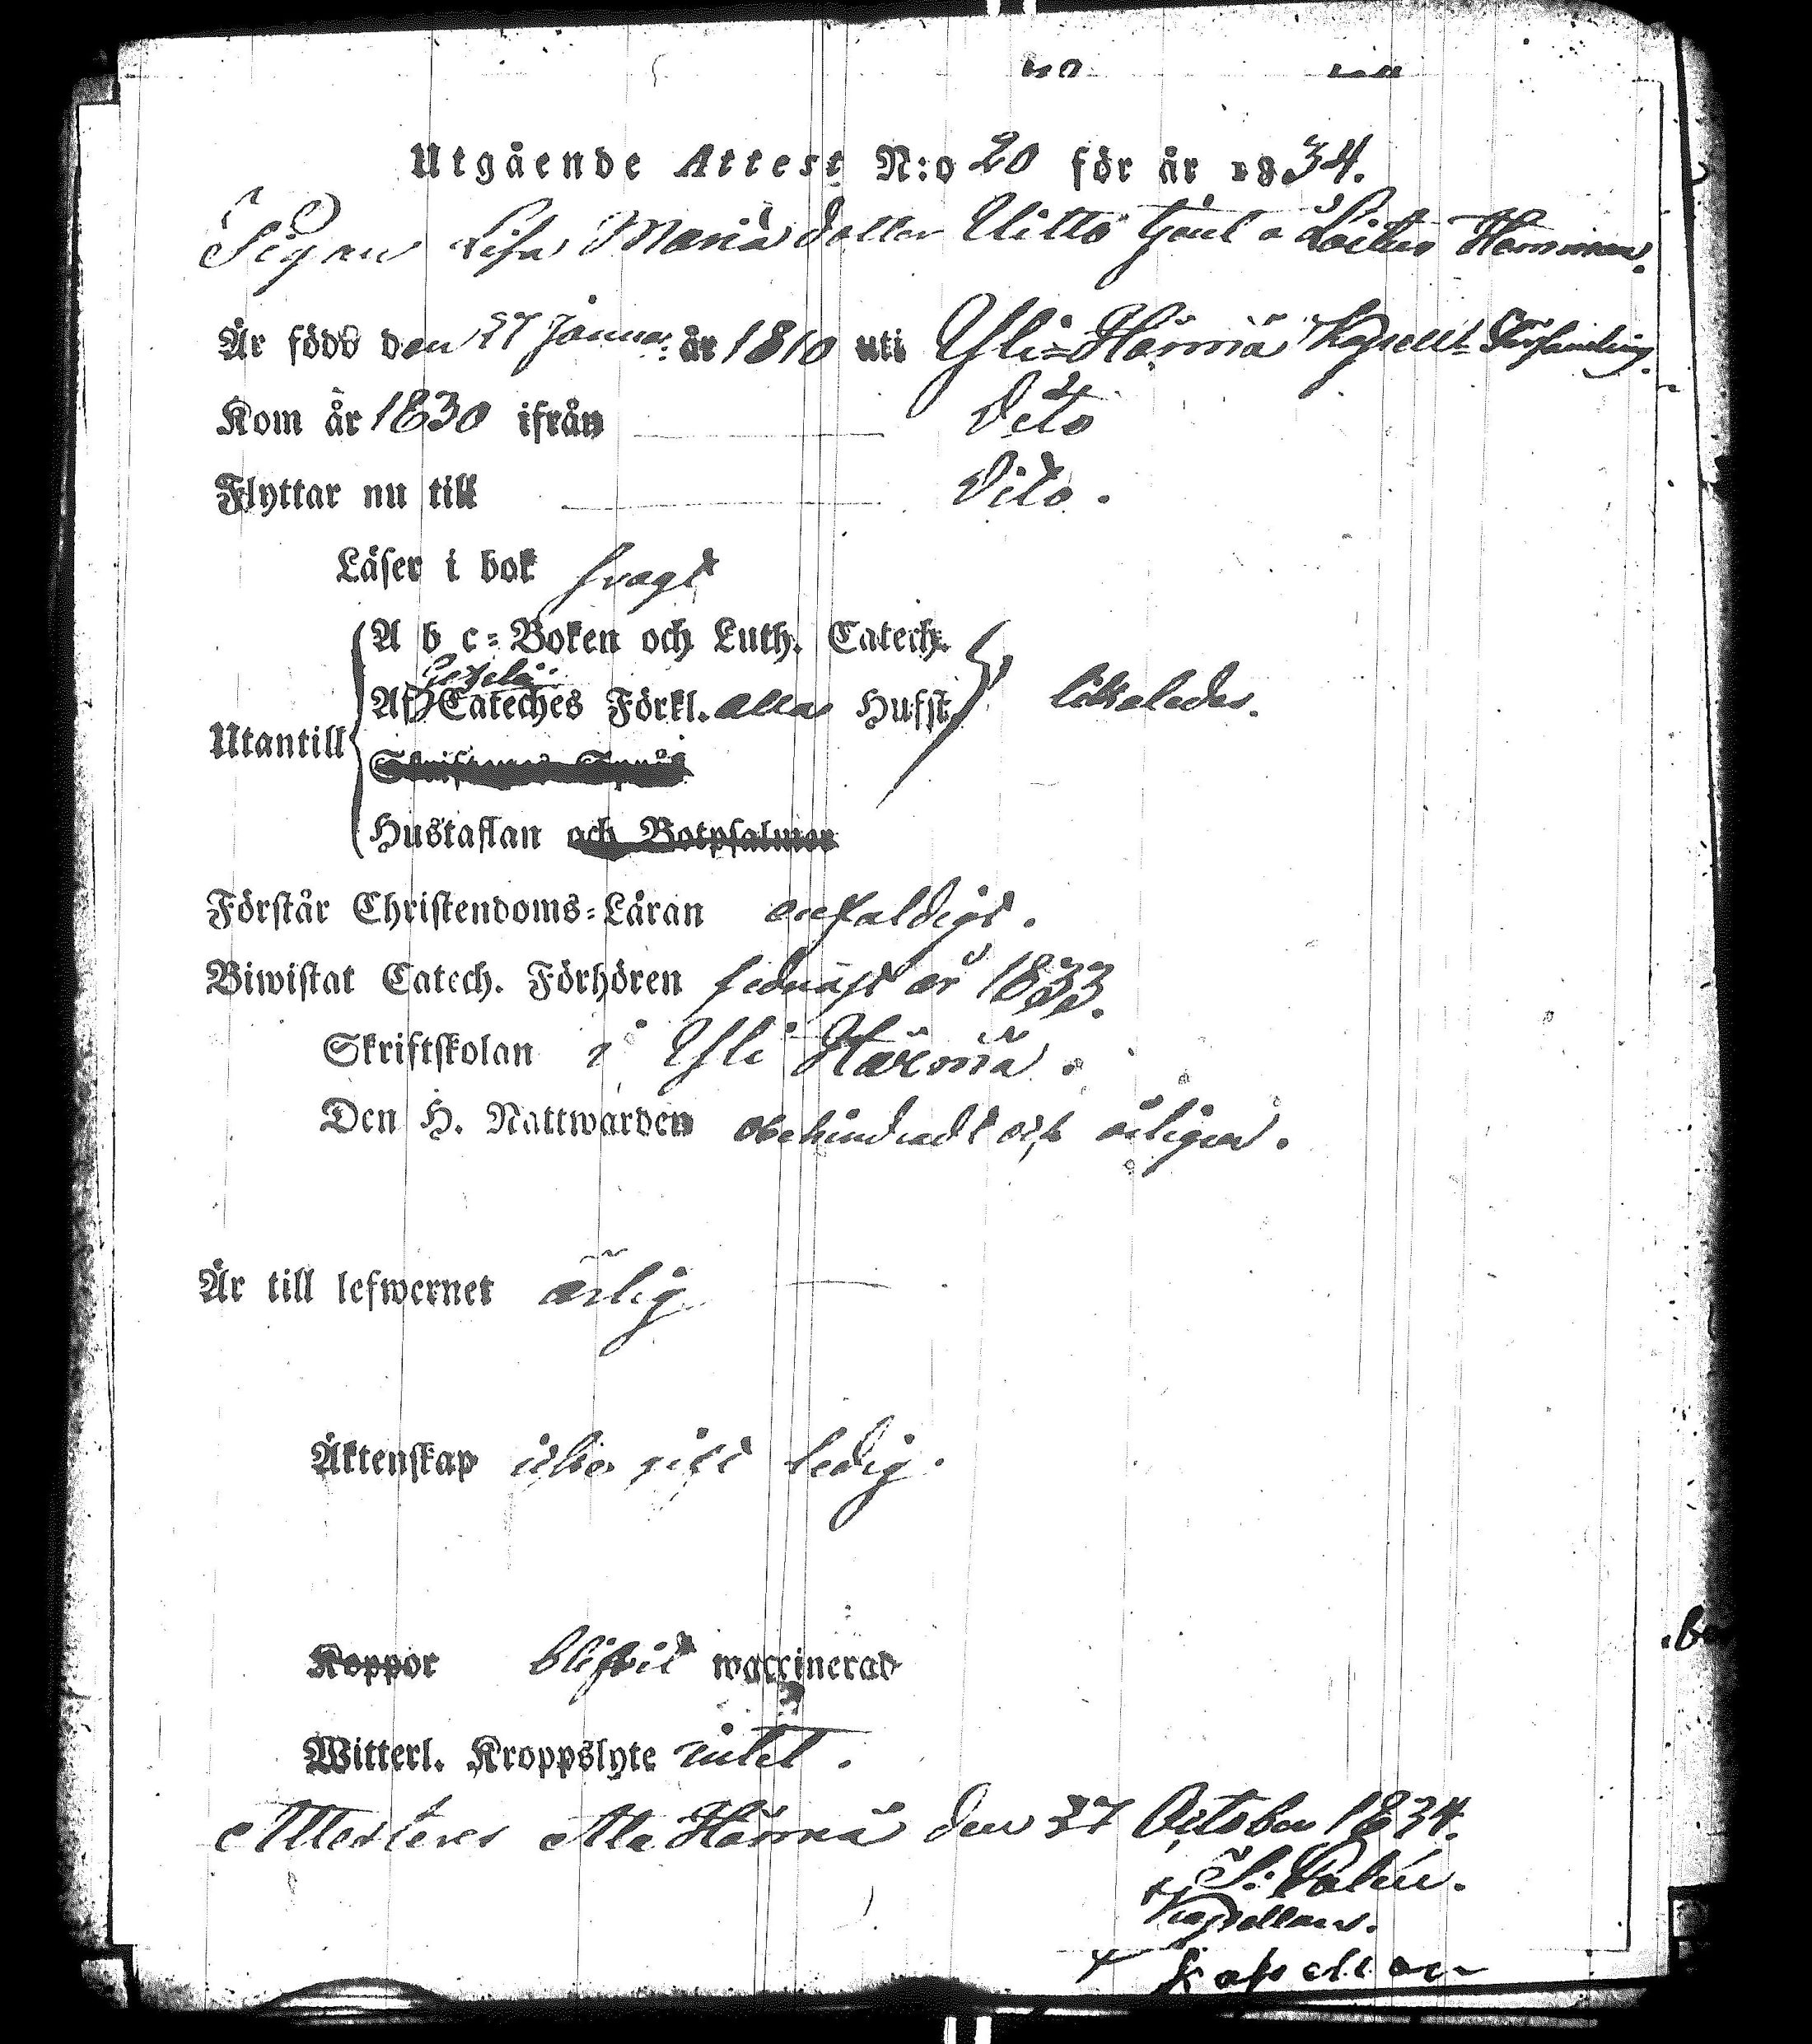 Utgående Attest N:o 20 för år 1834.
Pigan Lisa Maria dotter Uitto tjent å Loilus Hemman.
Är född den 27 Januar: år 1810 uti Yli-Härmä Kapell Församling.
Kom år 1830 ifrån Dito
Flyttar nu till Dito.
Läser i bok svagt
A b c-Boken och Luth. Catech.
Af Gezelii Cateches Förkl. alla Hufst. likaledes.
Utantill
Skriftenes Språk
Hustaflan och Botpsalmer
Förstår Christendoms-Läran enfaldigt.
Biwistat Catech. Förhören sednast år 1833.
Skriftskolan i Yli Härmä.
Den H. Nattwarden obehindradt och årligen.
Är till lefwernet ärlig
Äktenskap ledig.
Koppor blifvit waccinerad
Witterl. Kroppslyte intet.
Attesteres Ala Härmä den 27 October 1834.
Kapellan.
Kapellan